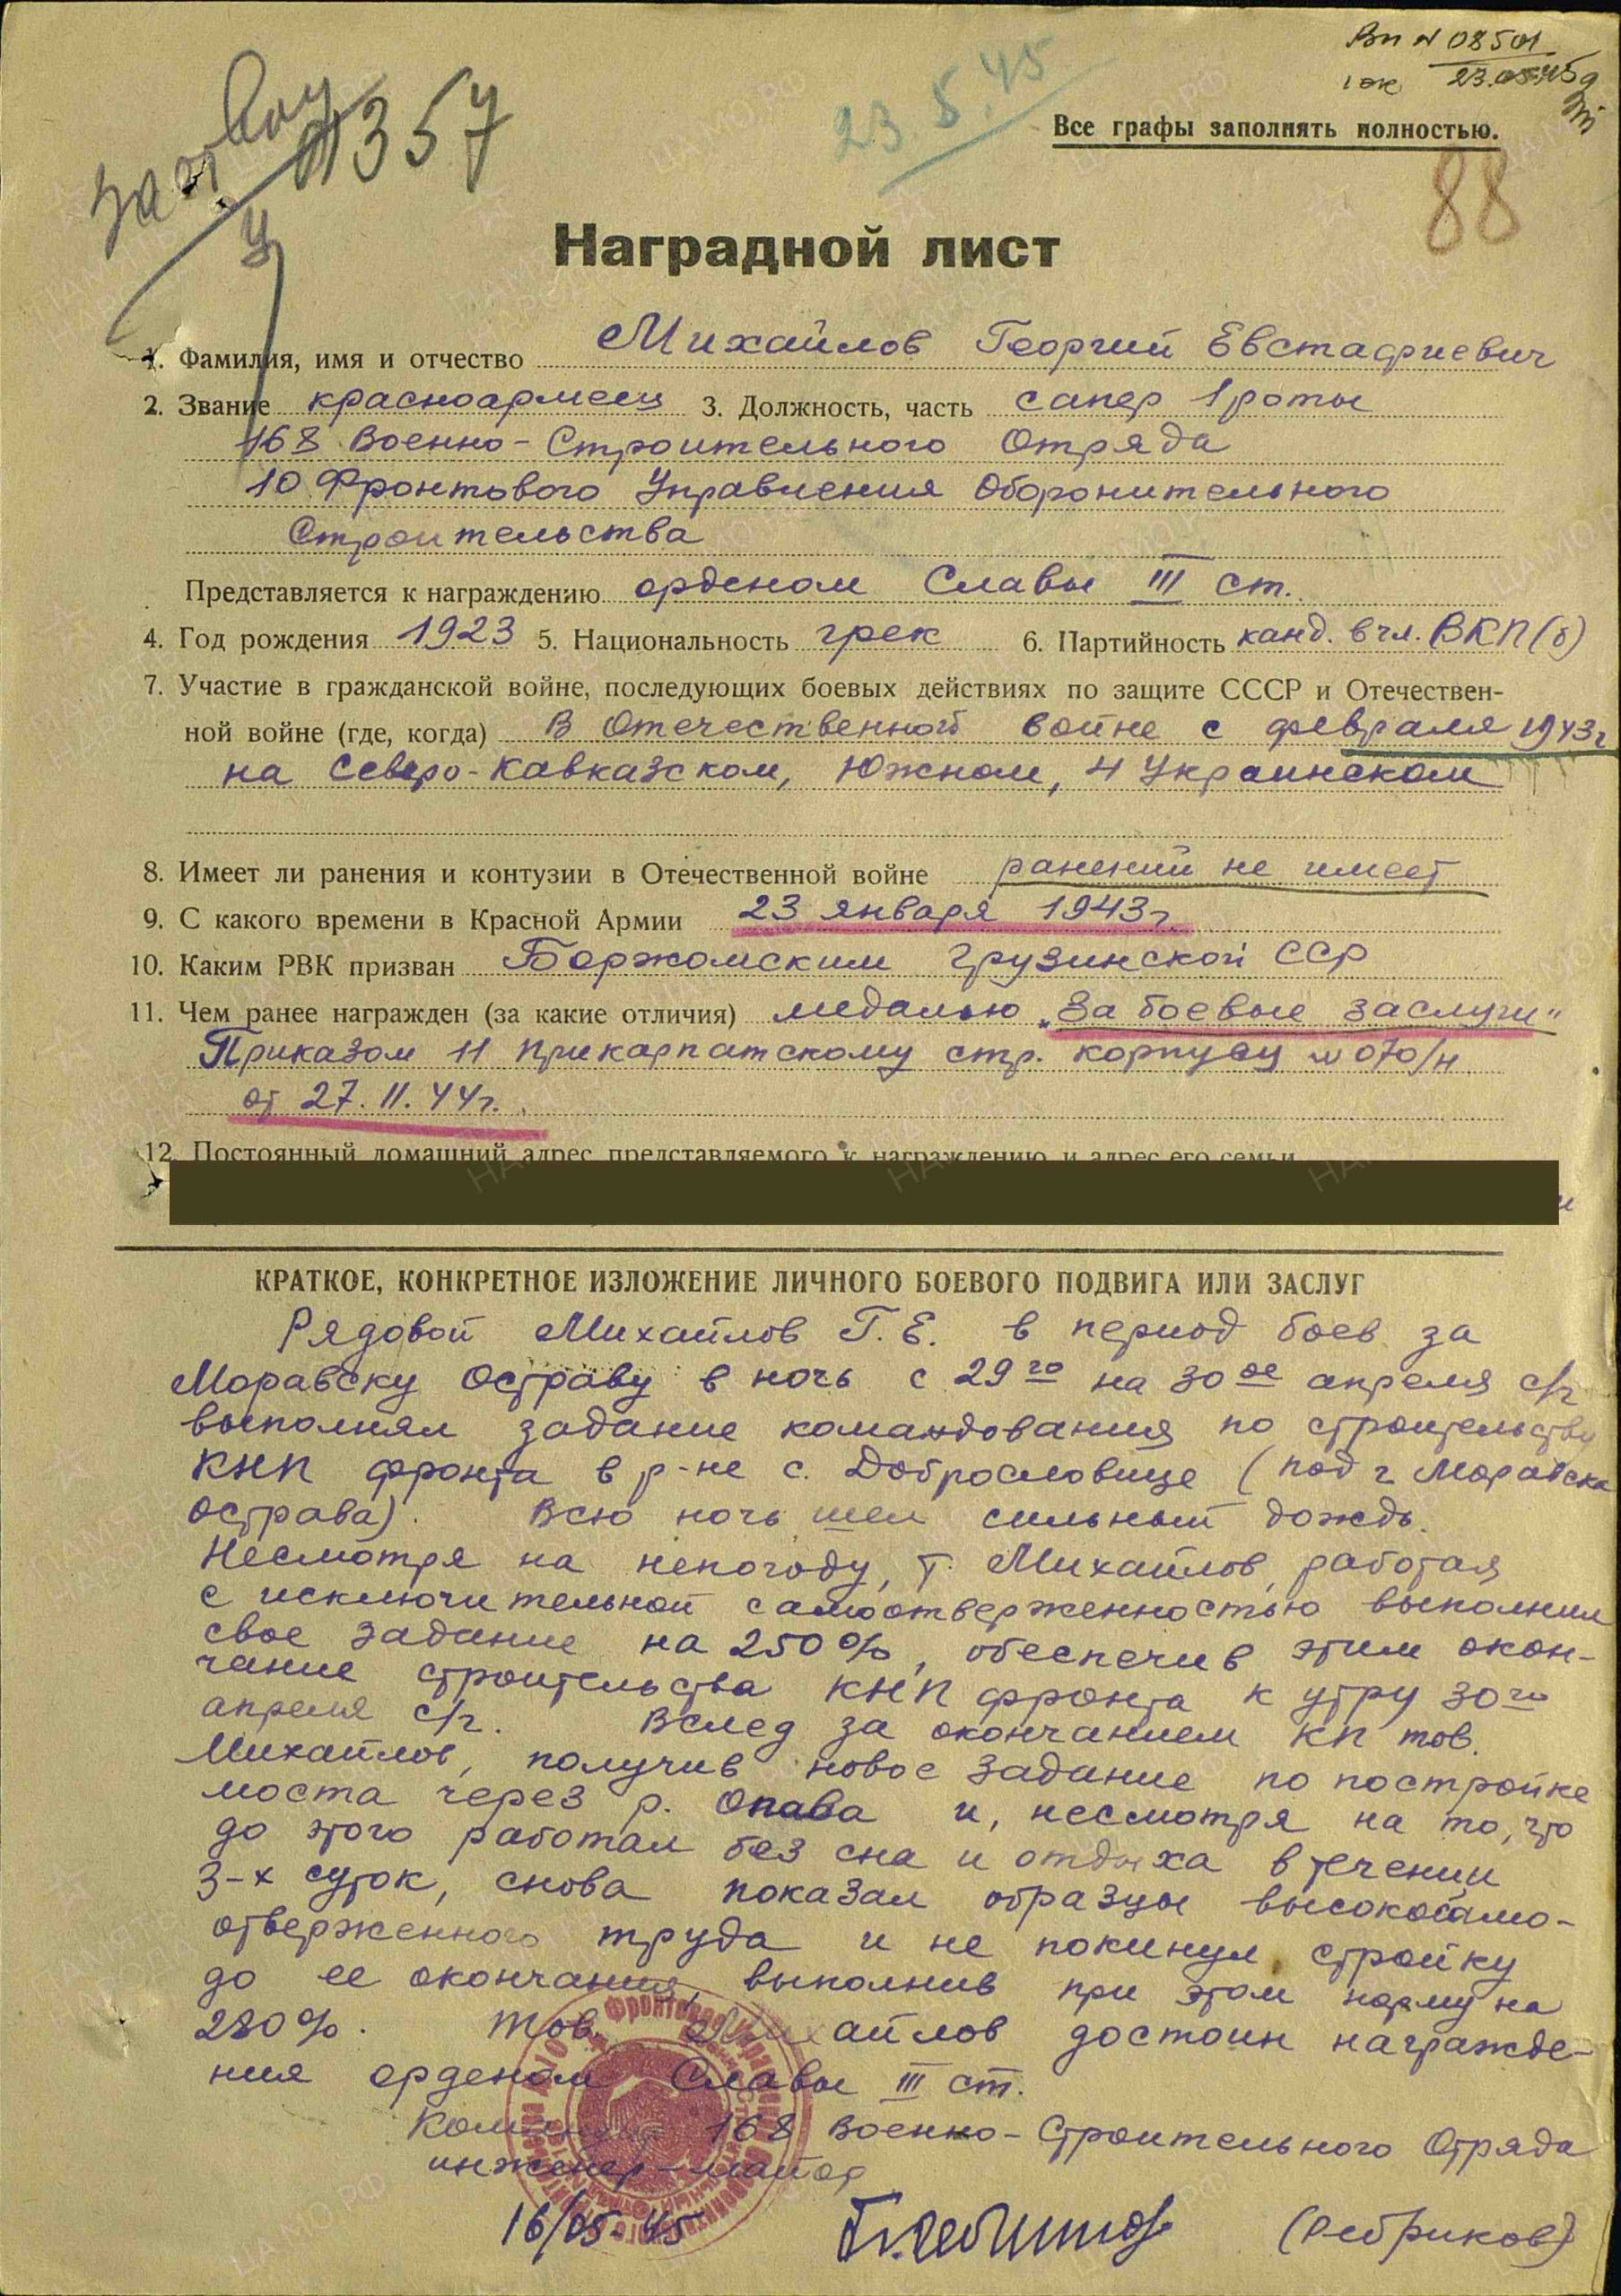 Вп № 08501
23.05.45г
23 5.45
357
Все графы заполнять полностью.
88
Наградной лист
1. Фамилия, имя и отчество Михайлов Георгий Евстафиевич
2. Звание красноармеец 3. Должность, часть сапер 1 роты
168 Военно-Строительного Отряда
10 Фронтового Управления Оборонительного
Строительства
Представляется к награждению орденом Славы III ст.
4. Год рождения 1923 5. Национальность грек 6. Партийность канд. в чл. ВКП(б)
7. Участие в гражданской войне, последующих боевых действиях по защите СССР и Отечествен-
ной войне (где, когда) В Отечественной войне с февраля 1943г
на Северо-Кавказском, Южном, 4 Украинском
8. Имеет ли ранения и контузии в Отечественной войне ранений не имеет
9. С какого времени в Красной Армии 23 января 1943г.
10. Каким РВК призван Боржомским Грузинской ССР
11. Чем ранее награжден (за какие отличия) медалью „За боевые заслуги"
Приказом 11 Прикарпатскому стр. корпусу № 070/н
от 27.11.44г.
12. Постоянный домашний адрес представляемого к награждению и адрес его семьи
КРАТКОЕ, КОНКРЕТНОЕ ИЗЛОЖЕНИЕ ЛИЧНОГО БОЕВОГО ПОДВИГА ИЛИ ЗАСЛУГ
Рядовой Михайлов Г.Е. в период боев за
Моравску Остраву в ночь с 29го на 30ое апреля с/г
выполнял задание командования по строительству
КНП фронта в р-не с. Доброславице (под г Моравска
Острава). Всю ночь шел сильный дождь.
Несмотря на непогоду, т. Михайлов, работая
с исключительной самоотверженностью выполнил
свое задание на 250%, обеспечив этим окон-
чание строительства КНП фронта к утру 30го
апреля с/г. Вслед за окончанием КП тов.
Михайлов, получив новое задание по постройке
моста через р. Опава и, несмотря на то, что
до этого работал без сна и отдыха в течении
3-х суток, снова показал образцы высокосамо-
отверженного труда и не покинул стройку
до ее окончания, выполнив при этом норму на
280%. Тов. Михайлов достоин награжде-
ния орденом Славы III ст.
Командир 168 Военно-Строительного Отряда
инженер-майор
16/05-45 (Ребриков)